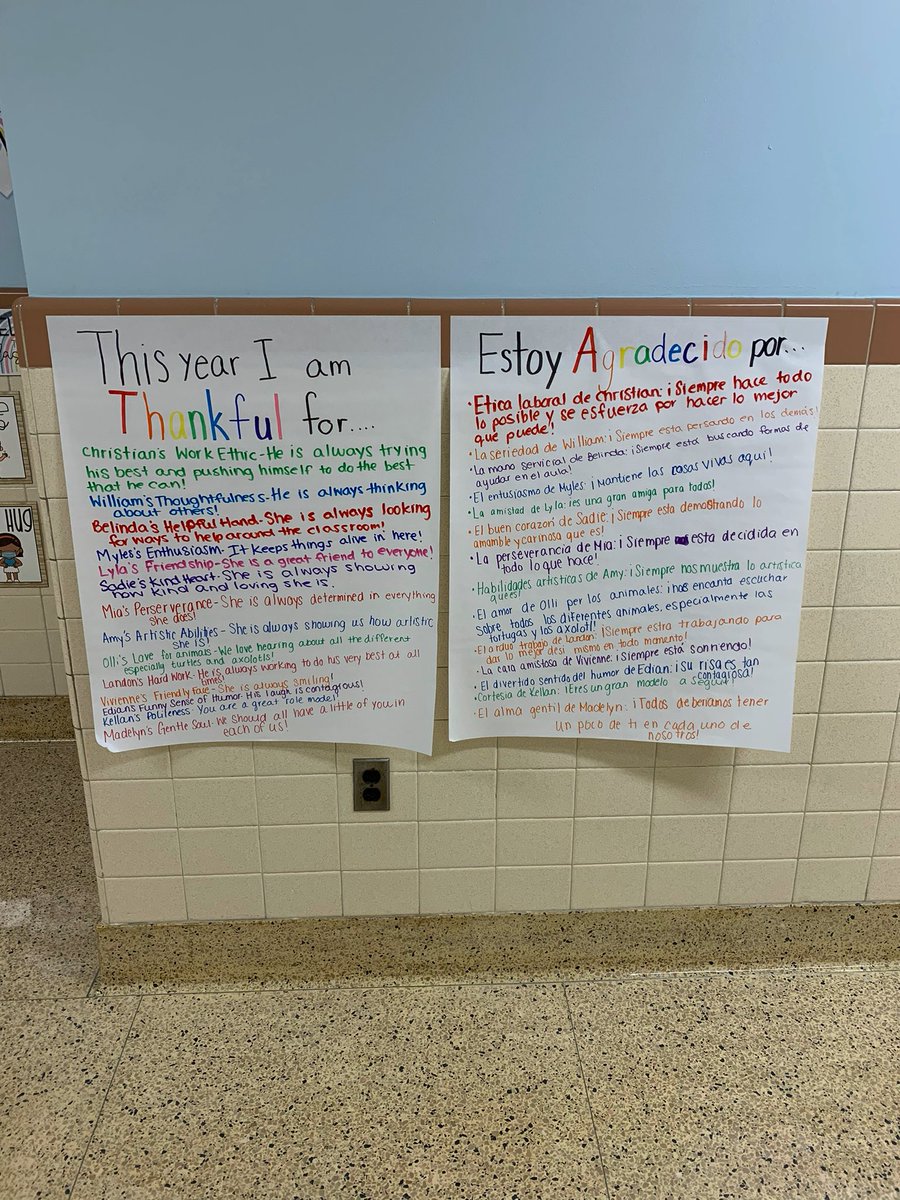 This year I am
Thankful for....
Christian's Work Ethic-He is always trying
his best and pushing himself to do the best
that he can!
William's Thoughtfulness-He is always thinking
about others!
Belinda's Helpful Hand-She is always looking
for ways to help around the classroom!
Myles's Enthusiasm-It keeps things alive in here!
Lyla's Friendship-She is a great friend to everyone!
Sadie's Kind Heart-She is always showing
how kind and loving she is.
Mia's Perserverance-She is always determined in everything
she does!
Amy's Artistic Abilities-She is always showing us how artistic
she is!
Olli's Love for animals-We love hearing about all the different
especially turtles and axolotls!
Landon's Hard Work-He is always working to do his very best at all
times!
Vivienne's Friendly Face-She is always smiling!
Edian's Funny Sense of Humor-His laugh is contagious!
Kellan's Politeness-You are a great role model!
Madelyn's Gentle Soul-We should all have a little of you in
each of us!
Estoy Agradecido por...
•Etica laboral de Christian: ¡Siempre hace todo
lo posible y se esfuerza por hacer lo mejor
que puede!
•La seriedad de William: ¡Siempre esta pensando en los demás!
•La mano servicial de Belinda: ¡Siempre está buscando formas de
ayudar en el aula!
•El entusiasmo de Myles: ¡Mantiene las cosas vivas aquí!
•La amistad de Lyla: ¡es una gran amiga para todos!
•El buen corazón de Sadie: ¡Siempre esta demostrando lo
amable y carinosa que es!
•La perseverancia de Mia: ¡Siempre esta decidida en
todo lo que hace!
•Habilidades artísticas de Amy: ¡Siempre nos muestra lo artística
que es!
•El amor de Olli por los animales: ¡nos encanta escuchar
sobre todos los diferentes animales, especialmente las
tortugas y los axolotl!
•El arduo trabajo de Landon: ¡Siempre estra trabajando para
dar lo mejor de sí mismo en todo momento!
•La cara amistosa de Vivienne: ¡siempre está sonriendo!
•El divertido sentido del humor de Edian: ¡su risa es tan
contagiosa!
•Cortesia de Kellan: ¡Eres un gran modelo a seguir!
•El alma gentil de Madelyn: ¡Todos deberíamos tener
un poco de ti en cada uno de
nosotros!
HUG